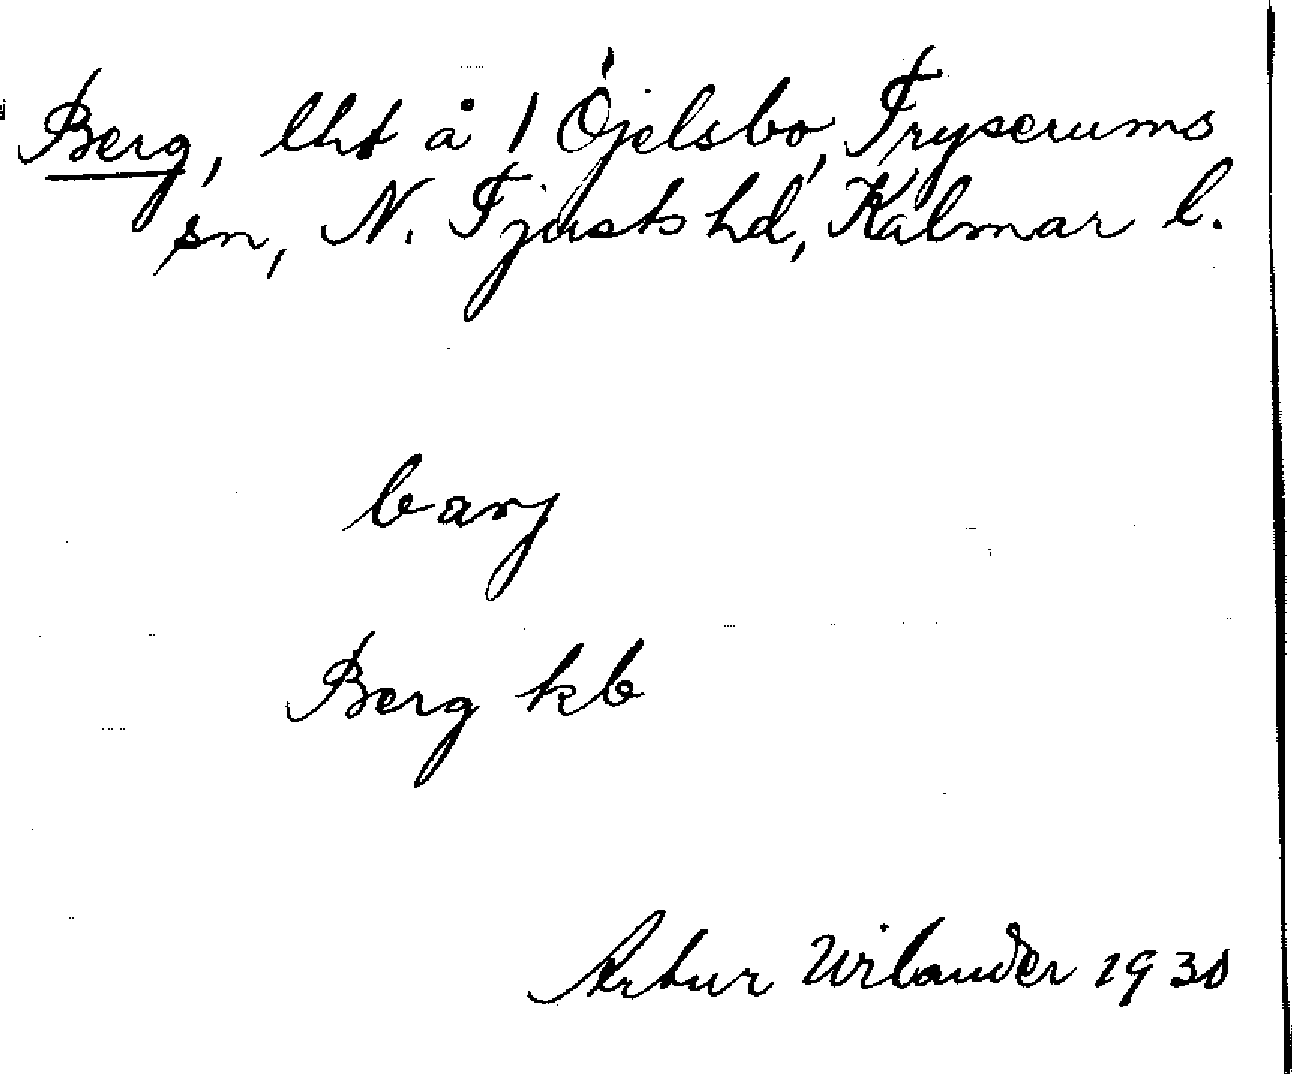 Berg, lht å 1 Öjelsbo, Tryserums
sn, N. Tjusts hd, Kalmar l.
barj
Berg kb
Artur Wilander 1930